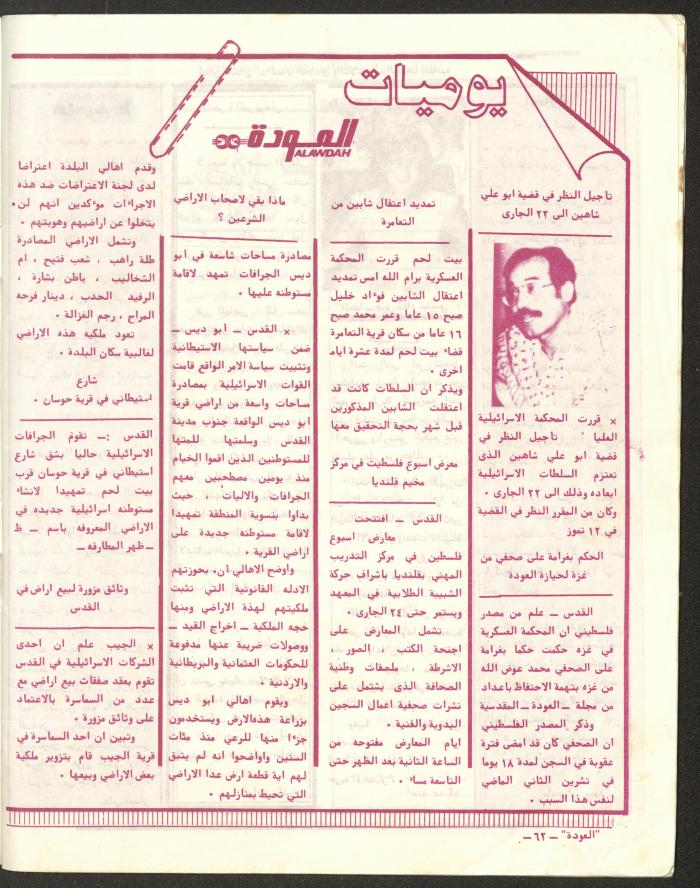 يوميات
العودة
ALAWDAH
تأجيل النظر في قضية ابو علي
شاهين الى ٢٢ الجارى
× قررت المحكمة الاسرائيلية
العليا تأجيل النظر في
قضية ابو علي شاهين الذى
تعتزم السلطات الاسرائيلية
ابعاده وذلك الى ٢٢ الجارى ٠
وكان من المقرر النظر في القضية
في ١٢ تموز
الحكم بغرامة على صحفي من
غزة لحيازة العودة
القدس ــ علم من مصدر
فلسطيني ان المحكمة العسكرية
في غزه حكمت حكما بغرامة
على الصحفي محمد عوض الله
من غزه بتهمة الاحتفاظ باعداد
من مجلة ــ العودة ــ المقدسية
وذكر المصدر الفلسطيني
ان الصحفي كان قد امضى فترة
عقوبة في السجن لمدة ١٨ يوما
في تشرين الثاني الماضي
لنفس هذا السبب ٠
تمديد اعتقال شابين من
التعامرة
بيت لحم قررت المحكمة
العسكرية برام الله امس تمديد
اعتقال الشابين فوءاد خليل
صبح ١٥ عاما وعمر محمد صبح
١٦ عاما من سكان قرية التعامرة
قضاء بيت لحم لمدة عشرة ايام
اخرى ٠
ويذكر ان السلطات كانت قد
اعتقلت الشابين المذكورين
قبل شهر بحجة التحقيق معها
معرض اسبوع فلسطيت في مركز
مخيم قلنديا
القدس ــ افتتحت
معارض اسبوع
فلسطين في مركز التدريب
المهني بقلنديا باشراف حركة
الشبيبة الطلابية في المعهد
ويستمر حتى ٢٤ الجارى ٠
تشمل المعارض على
اجنحة الكتب ، الصور ،
الاشرطة ، ملصقات وطنية
الصحافة الذى يشتمل على
نشرات صحفية اعمال السجين
اليدوية والفنية ٠
ايام المعارض مفتوحه من
الساعة الثانية بعد الظهر حتى
التاسعة مساء ٠
ماذا بقي لاصحاب الاراضي
الشرعين ؟
مصادرة مساحات شاسعة في ابو
ديس الجرافات تمهد لاقامة
مستوطنه عليها ٠
× القدس ــ ابو ديس ــ
ضمن سياستها الاستيطانية
وتثبيت سياسة الامر الواقع قامت
القوات الاسرائيلية بمصادرة
مساحات واسعة من اراضي قرية
ابو ديس الواقعة جنوب مدينة
القدس وسلمتها للمتها
للمستوطنين الذين اقموا الخيام
منذ يومين مصطحبين معهم
الجرافات والاليات ، حيث
بداوا بتسوية المنطقة تمهيدا
لاقامة مستوطنه جديدة على
اراضي القرية ٠
واوضح الاهالي ان بحوزتهم
الادله القانونية التي تثبت
ملكيتهم لهذة الاراضي ومنها
حجه الملكية ــ اخراج القيد ــ
ووصولات ضريبة عنها مدفوعة
للحكومات العثمانية والبريطانية
والاردنية ٠
ويقوم اهالي ابو ديس
بزراعة هذه الارض ويستخدمون
جزءا منها للرعي منذ مئات
السنين واواضحوا انه لم يتبق
لهم اية قطعة ارض عدا الاراضي
التي تحيط بمنازلهم ٠
وقدم اهالي البلدة اعتراضا
لدى لجنة الاعتراضات ضد هذه
الاجراءات موءكدين انهم لن
يتخلوا عن اراضيهم وهويتهم ٠
وتشمل الاراضي المصادرة
طلة راهب ، شعب فتيح ، ام
الشخاليب ، باطن بشارة ،
الرفيد الحدب ، دينار فرحه
المراح ، رجم الغزالة ٠
تعود ملكيه هذه الاراضي
لغالبية سكان البلدة ٠
شارع
استيطاني في قرية حوسان ٠
القدس :ــ تقوم الجرافات
الاسرائيلية حاليا بشق شارع
استيطاني في قرية حوسان قرب
بيت لحم تمهيدا لانشاء
مستوطنه اسرائيلية جديده في
الاراضي المعروفه باسم ــ ظ
ــ ظهر المطارفه ــ
وثائق مزورة لبيع اراض في
القدس
× الجيب علم ان احدى
الشركات الاسرائيلية في القدس
تقوم بعقد صفقات بيع اراضي مع
عدد من السماسرة بالاعتماد
على وثائق مزورة ٠
وتبين ان احد السماسرة في
قرية الجيب قام بتزوير ملكية
بعض الاراضي وبيعها ٠
"العودة" ــ ٦٢ ــ